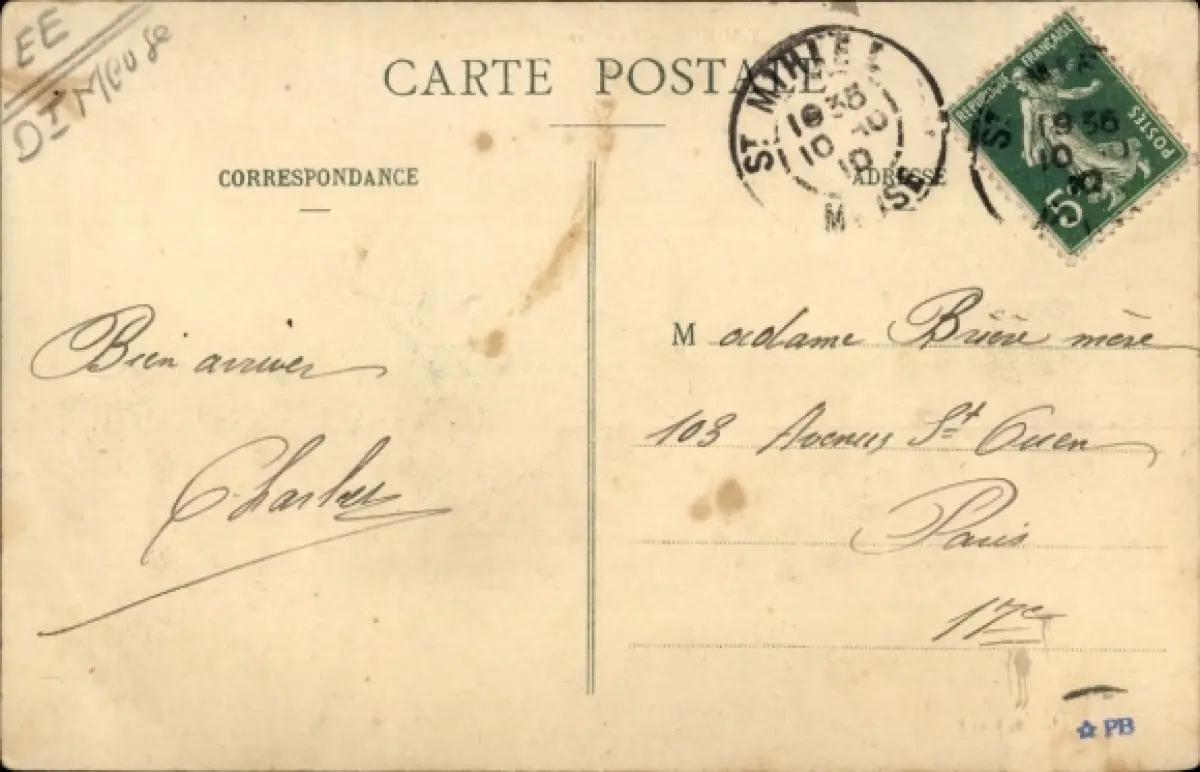 EE
DI Meuse
CARTE POSTALE
ST MIHIEL
19 35
10 10
10
MEUSE
REPUBLIQUE FRANÇAISE
POSTES
5
ST
19 35
10
CORRESPONDANCE
ADRESSE
Bien arriver
Charles
Madame Brière mère
103 Avenue St Ouen
Paris
17e
PB